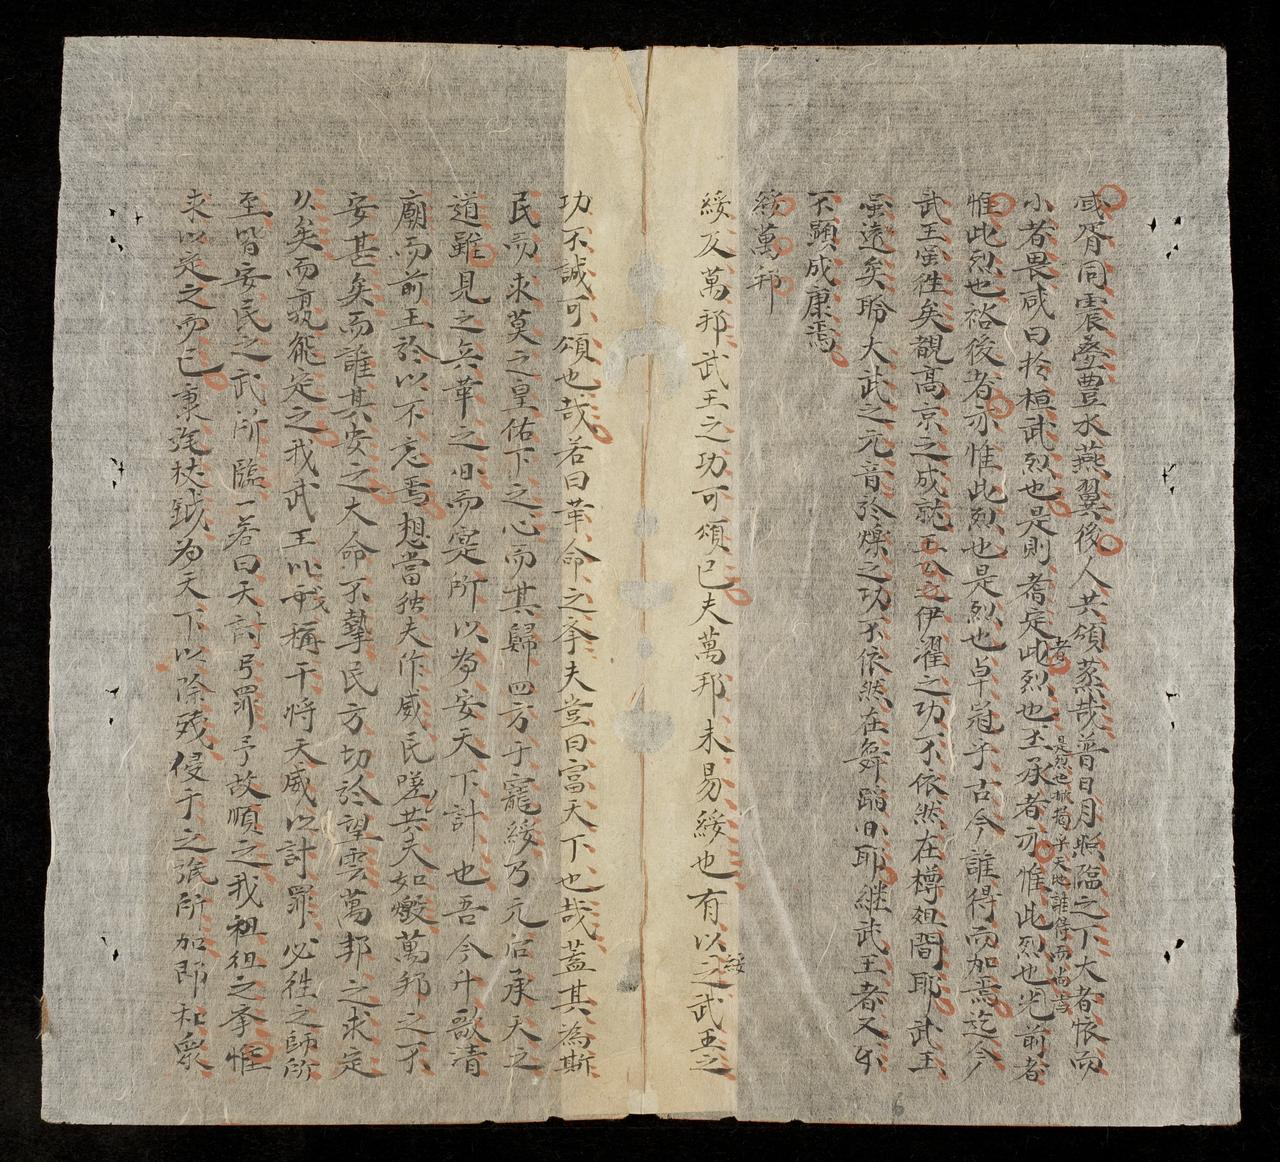 咸胥同震疊豊水燕翼後人共頌烝哉普日月照臨之下大者懷而
小者畏咸曰於桓武烈也是則耆定此烈也王承者亦惟此烈也光前者
者
是烈也掀揭乎天地誰得而尚焉
惟此烈也裕後者亦惟此烈也是烈也卓冠乎古今誰得而加焉迄今
武王虽徃矣觀高京之成就王公之伊濯之功不依然在樽俎間耶武王
虽遠矣聆大武之元音於爍之功不依然在舞蹈日耶継武王者又不
不顕成康焉
綏萬邦
綏及萬邦武王之功可頌已夫萬邦未易綏也有以之武王之
綏
功不誠可頌也哉若曰革命之李夫豈曰富天下也哉蓋其為斯
民而求莫之皇佑下之心而其歸四方于寵綏乃元后承天之
道雖見之兵革之日而寔所以為安天下計也吾今升歌清
廟而前王於以不忘焉想當独夫作威民嗟共夫如燬萬邦之不
安甚矣而誰其安之大命不摯民方切於望雲萬邦之求定
久矣而孰能定之我武王以我稱干將天威以討罪必徃之師所
至皆安民之武所臨一若曰天討予罪予故順之我祖徂之李惟
求以定之而已秉旄杖鉞為天下以除残侵于之彊所加即杜衆